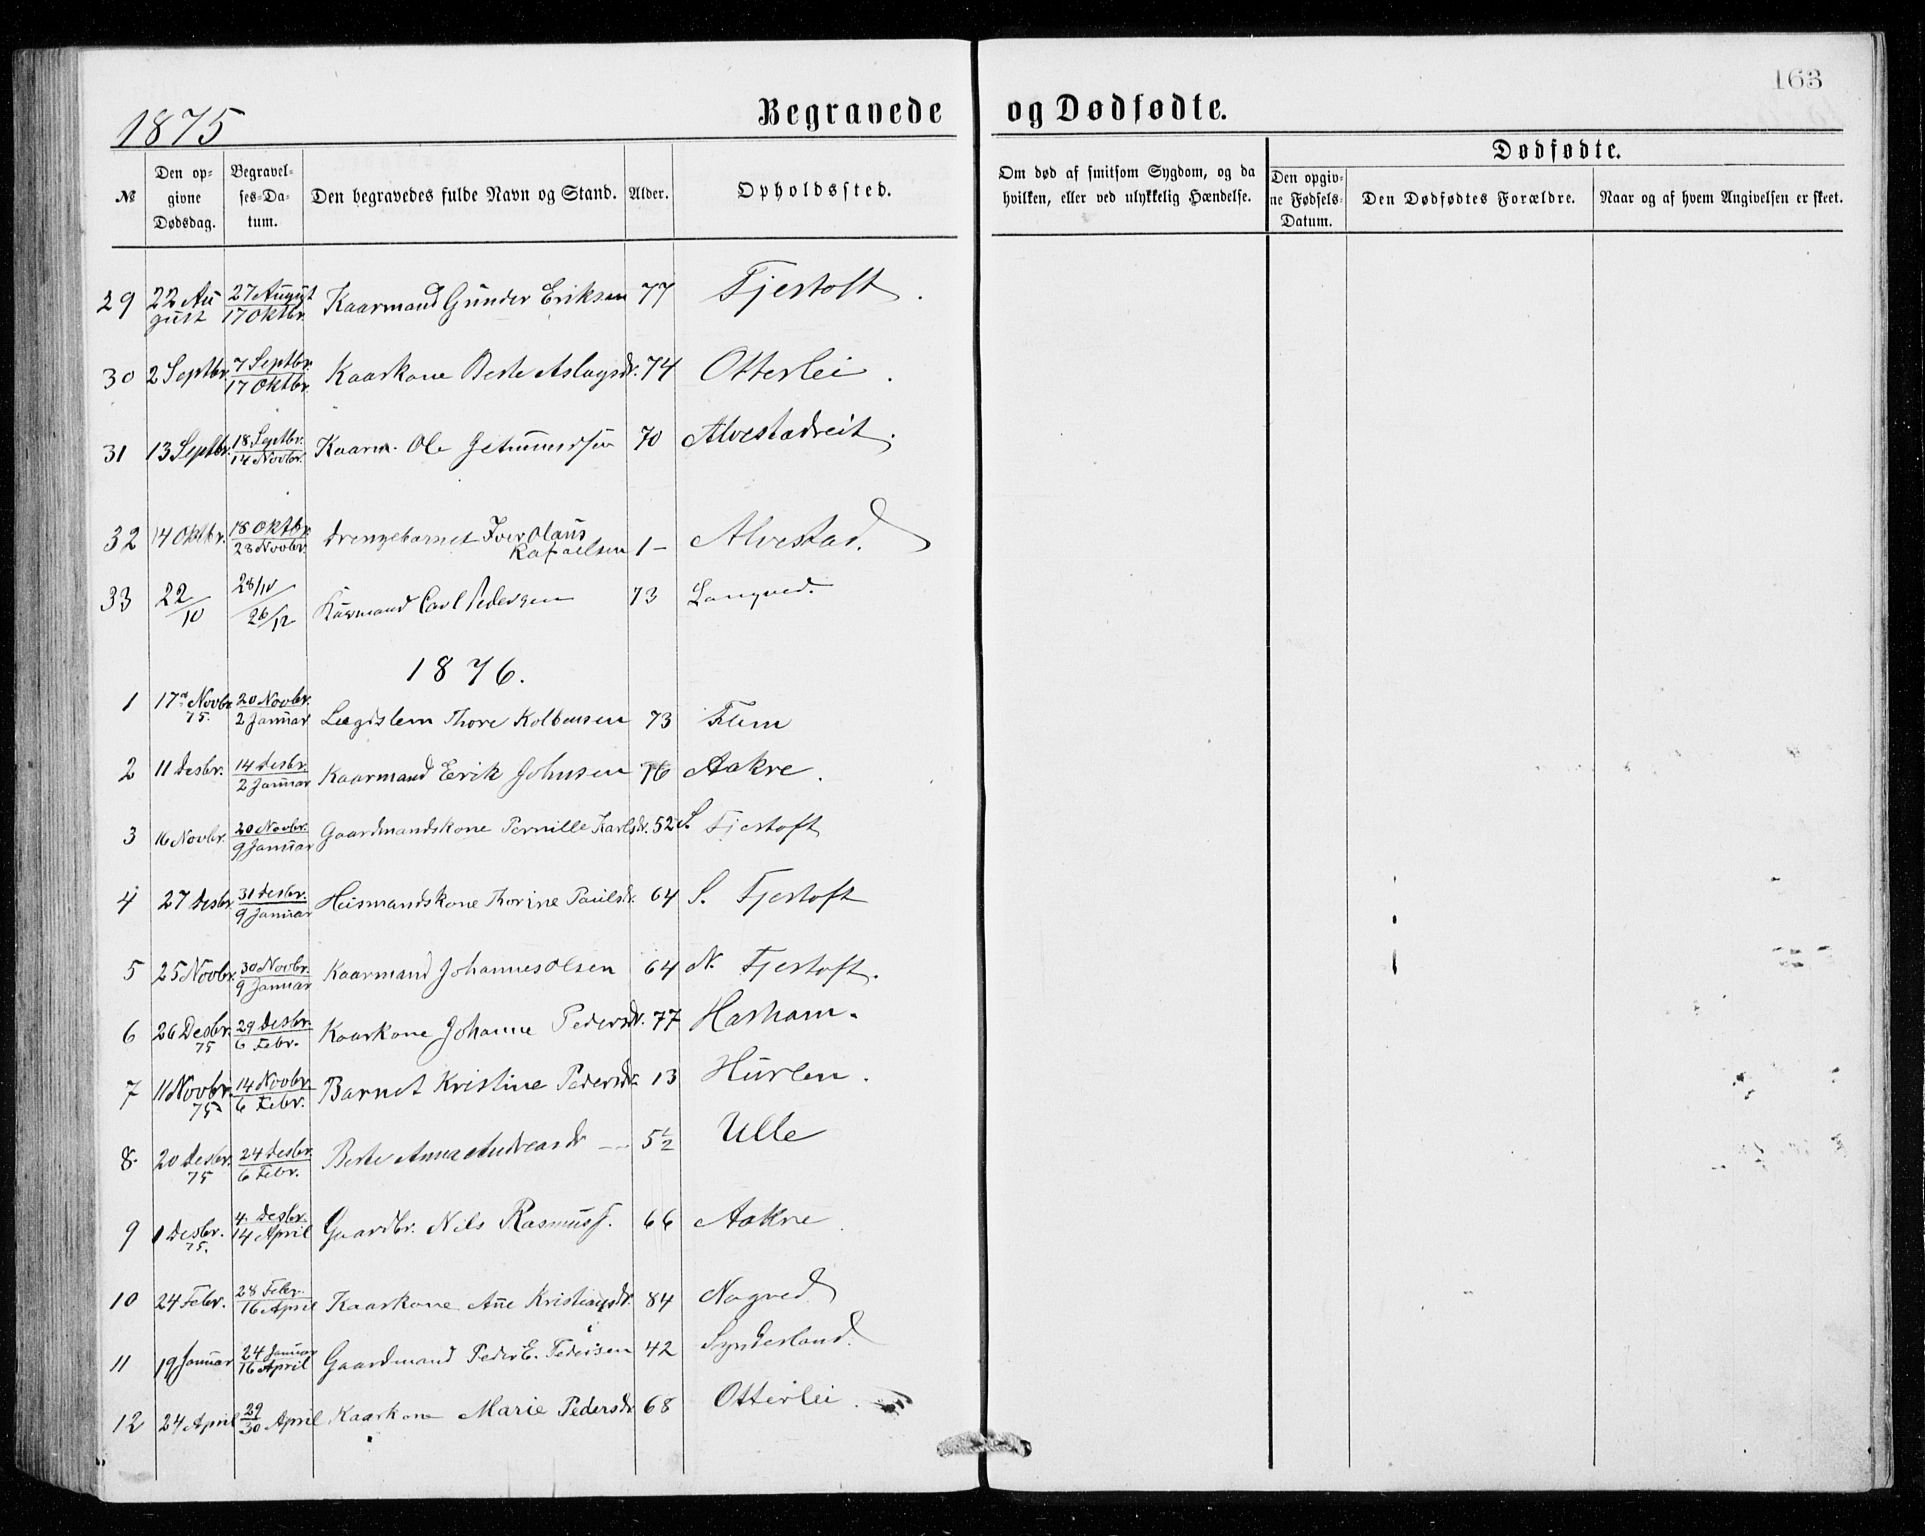 163
1875
Begravede og Dødfødte.
№
Den opgivne Dødsdag.
Begravelses-Datum.
Den begravedes fulde Navn og Stand.
Alder.
Opholdssted.
Om død af smitsom Sygdom, og da hvilken, eller ved ulykkelig Hændelse.
Dødfødte.
Den opgivne Fødsels-Datum.
Den Dødfødtes Forældre.
Naar og af hvem Angivelsen er skeet.
29 22 August 27 August 17 Oktbr. Kaarmand Gunder Eriksen 77 Fjertoft.
30 2 Septbr. 7 Septbr. 17 Oktbr. Kaarkone Berte Aslagsdr. 74 Otterlei.
31 13 Septbr. 18 Septbr. 14 Novbr. Kaarm. Ole 70 Alvestadreit.
32 14 Oktbr. 18 Oktbr. 28 Novbr. Drengebarnet Iver Olaus Rafaelsen 1- Alvestad.
33 22/10 28/10 26/12 Kaarmand Carl Pedersen 73 Langved.
1876.
1 17de Novbr. 75. 20 Novbr. 2 Januar Lægislem Thore Kolbensen 73 Flem
2 11 Desbr. 14 Desbr. 2 Januar Kaarmand Erik Johnsen 76 Aakre.
3 16 Novbr. 20 Novbr. 9 Januar Gaardmandskone Pernille Karlsdr. 52 S. Fjertoft
4 27 Desbr. 31 Desbr. 9 Januar Husmandskone Thorine Paulsdr. 64 S. Fjertoft
5 25 Novbr. 30 Novbr. 9 Januar Kaarmand Johannes Olsen 64 N. Fjertoft.
6 26 Desbr. 75 29 Desbr. 6 Febr. Kaarkone Johanne Pedersdr. 77 Harham.
7 11 Novbr. 75 14 Novbr. 6 Febr. Barnet Kristine Pedersdr. 13 Hurlen.
8. 20 Desbr. 75 24 Desbr. 6 Febr. Berte Anna Andreasdr — 5½ Ulle
9 1 Desbr. 75. 4. Desbr. 14 April Gaardbr. Nils Rasmuss. 66 Aakre.
10 24 Febr. 28 Febr. 16 April Kaarkone Ane Kristiansdr. 84 Nogved
11 19 Januar 24 Januar 16 April Gaardmand Peder E. Pedersen 42 Synderland.
12 24 April 29/30 April Kaarkone Marie Pedersdr 68 Otterlei.